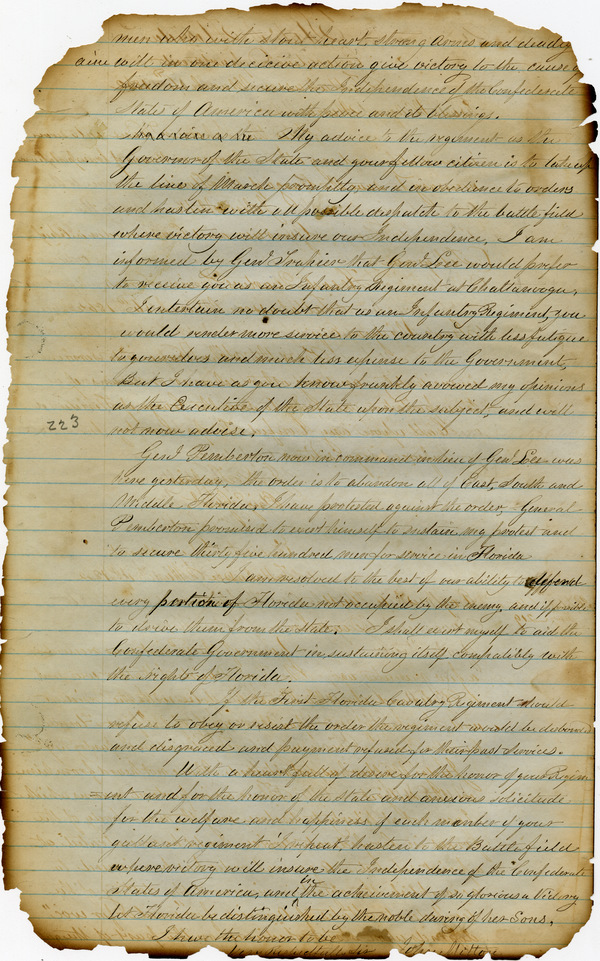 men who with stout heart, strong arms and deadly
aim will in one decicive action give victory to the cause of
freedom and secure the Independence of the Confederate
States of America with peace and its blessings.
My advice to the regiment as the
Governor of the State and your fellow citizen is to take up
the line of March promptly and in obedience to orders
and hasten with all possible dispatch to the battle field
where victory will insure our Independence. I am
informed by Genl. Trapier that Genl. Lee would prefer
to receive you as an Infantry Regiment at Chattanooga.
I entertain no doubt that as an Infantry Regiment, you
would render more service to the country with less fatigue
to yourselves and much less expense to the Government,
But I have as you know frankly avowed my opinions
as the Executive of the State upon the subject, and will
not now advise.
223
Genl. Pemberton now in command in lieu of Genl. Lee was
here yesterday, the order is to abandon all of East, South and
Middle Florida, I have protested against the order, General
Pemberton promised to exert himself to sustain my protest and
to secure thirty five hundred men for service in Florida
I am resolved to the best of our ability to defend
every portion of Florida not occupied by the enemy, and if possible
to drive them from the State. I shall exert myself to aid the
Confederate Government in sustaining itself compatibly with
the rights of Florida.
If the First Florida Cavalry Regiment should
refuse to obey or resist the order the regiment would be disbanded
and disgraced and payment refused for their past services.
With a heart full of desire for the honor of your Regim
ent and for the honor of the State and anxious solicitude
for the welfare and happiness of each member of your
gallant regiment I repeat, hasten to the Battle field
where victory will insure the Independence of the Confederate
States of America, and in the acheivement of so glorious a Victory
let Florida be distinguished by the noble daring of her Sons.
I have the honor to be
John Milton